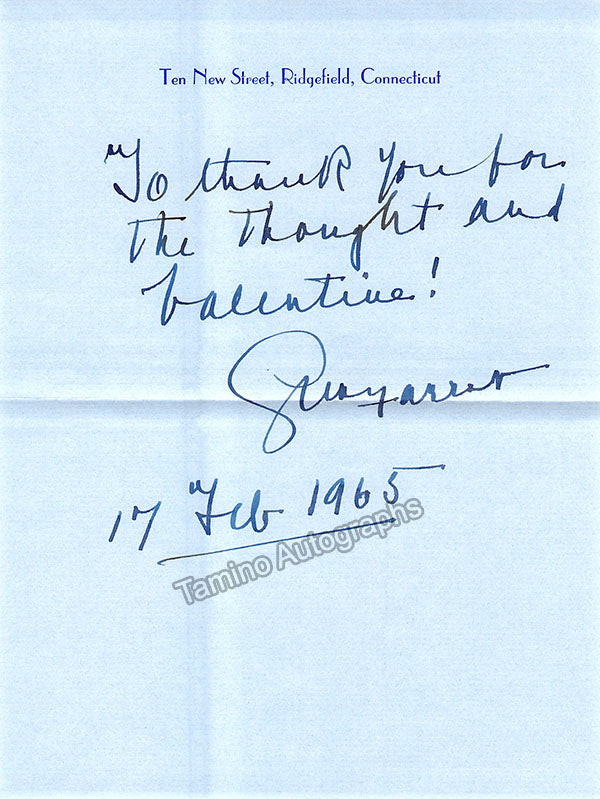 Ten New Street, Ridgefield, Connecticut
To thank you for
the thought and
Valentine!
17 Feb 1965
Tamino Autographs